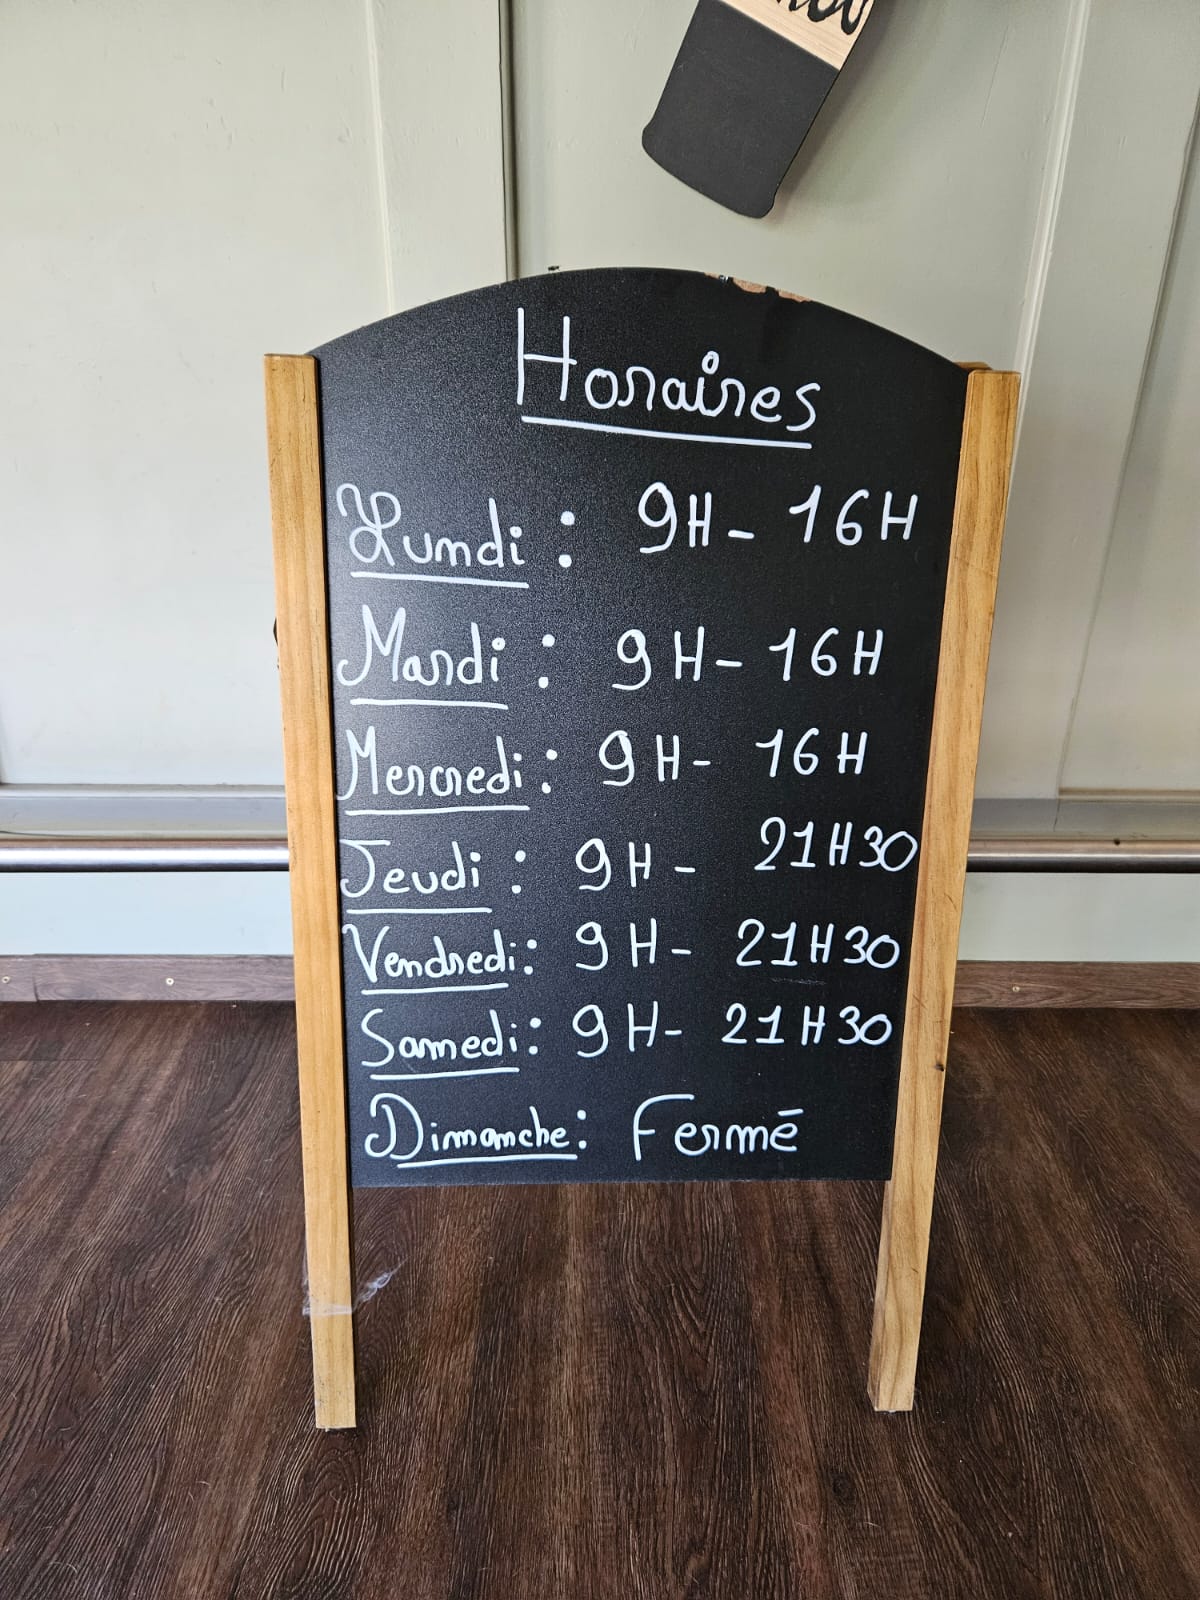 Horaires
Lundi : 9H - 16H
Mardi : 9H - 16H
Mercredi : 9H - 16H
Jeudi : 9H - 21H30
Vendredi : 9H - 21H30
Samedi : 9H - 21H30
Dimanche : Fermé